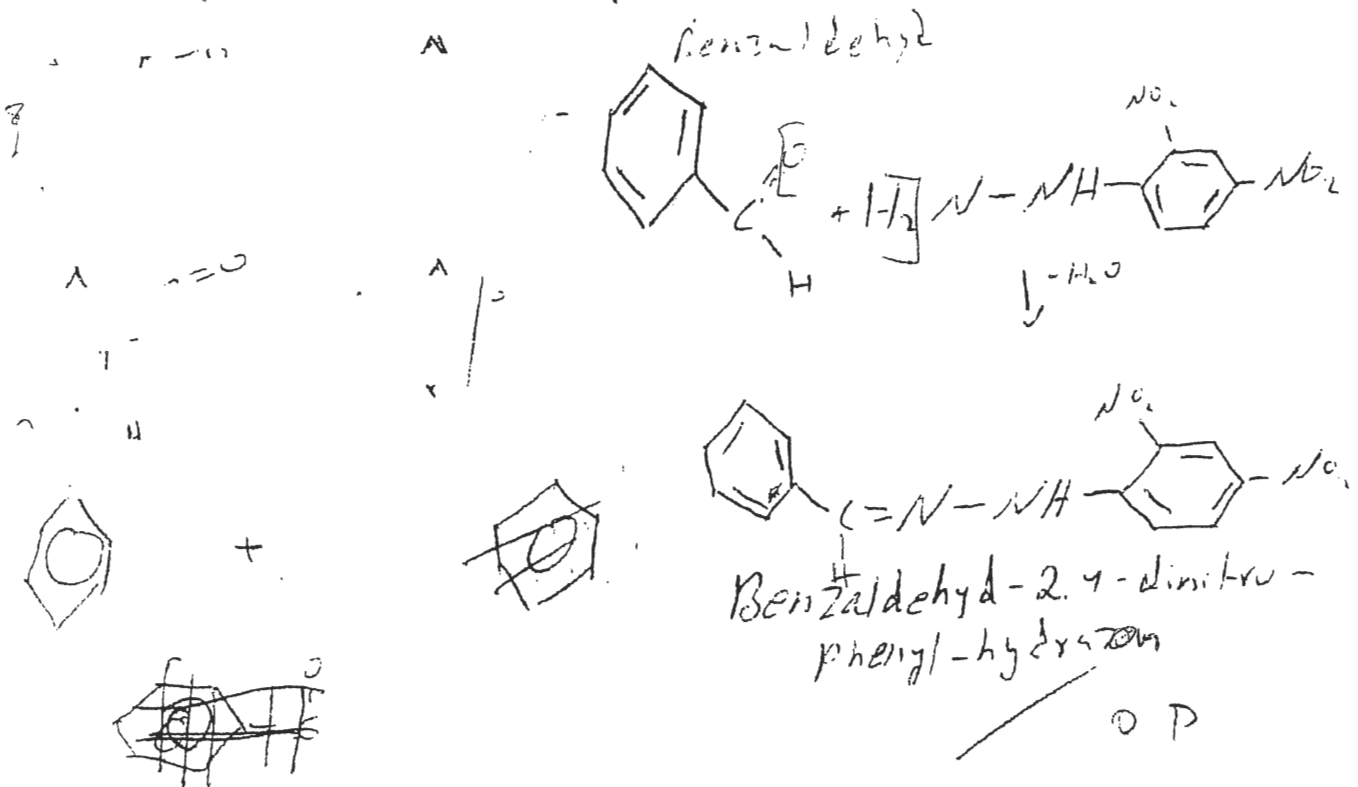 Benzaldehyd
NO₂
O
C + H₂] N - NH - NO₂
H
↓ - H₂O
NO₂
C = N - NH - NO₂
H
Benzaldehyd - 2.4 - dinitro -
phenyl - hydrazon
O P
+